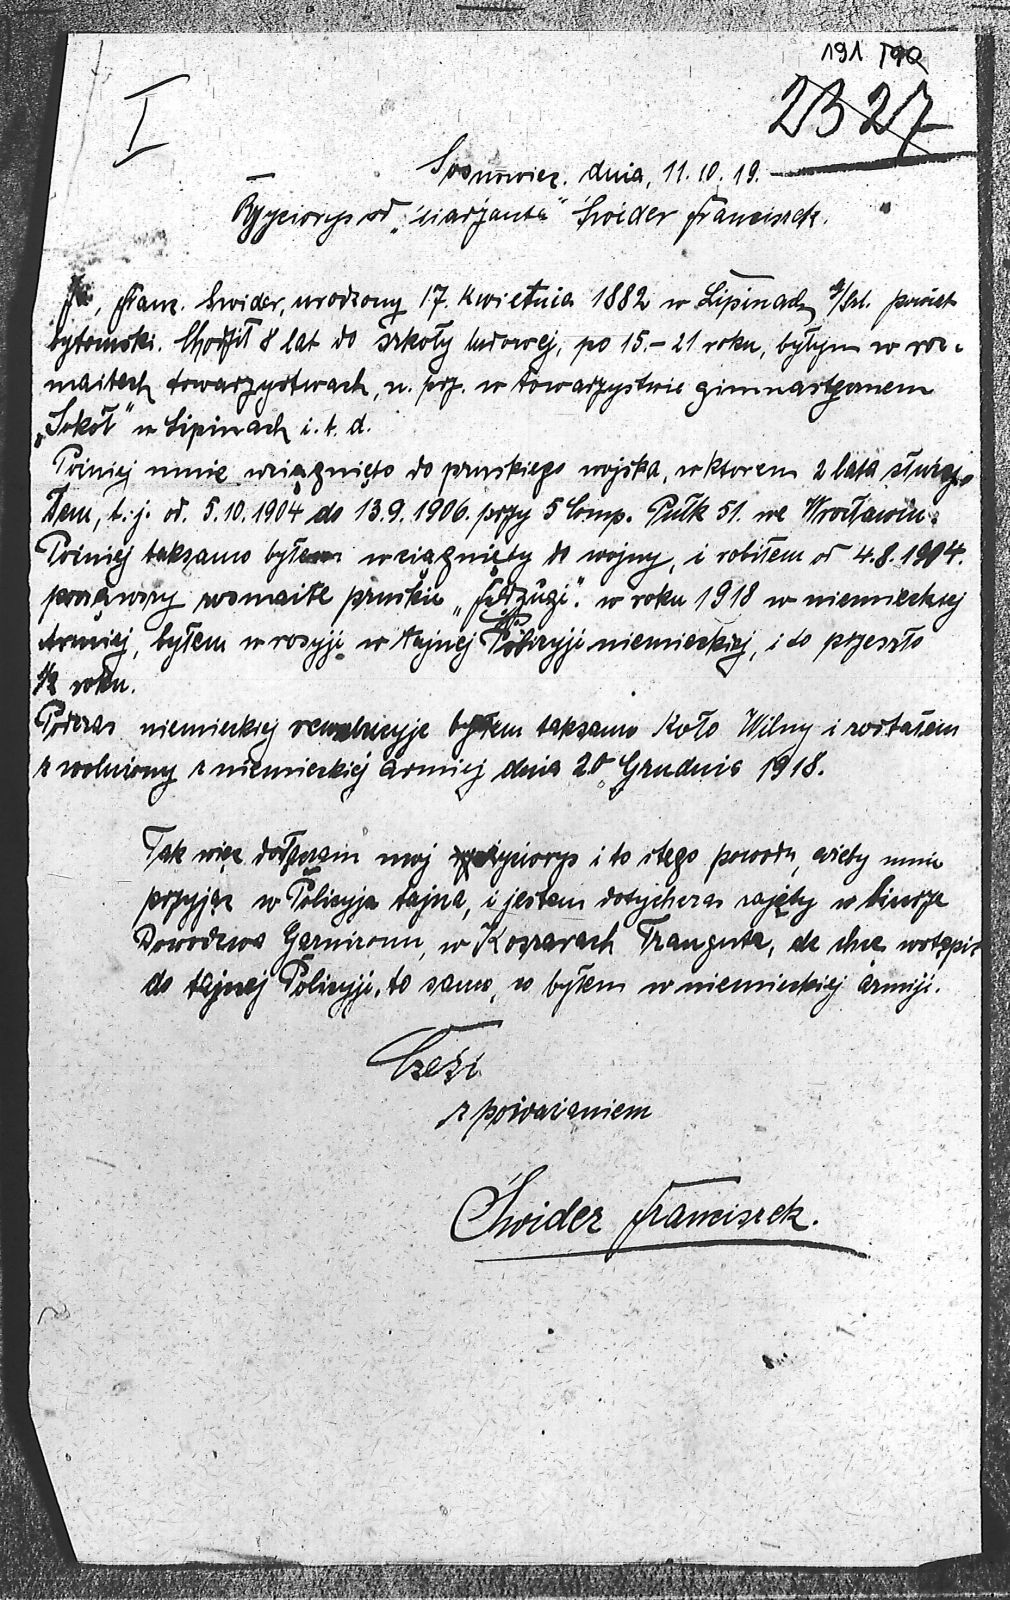 191 190
I
23 27
Sosnowiec. dnia, 11.10.19.
Życiorys od „siarżanta" Świder Franciszek.
Ja, Franz. Swider, urodzony 17. Kwietnia 1882 w Lipinach g/Szl. powiet
bytomski. Chodził 8 lat do szkoły ludowej, po 15.- 21 roku, byłym w roz-
maitech towarzystwach, n. prz. w towarzystwie gimnastycznem
„Sokół" w Lipinach i. t. d.
Pózniej mnie wziągnięto do pruskiego wojska, w ktorem 2 lata służy-
łem, t. j. od. 5.10.1904 do 13.9.1906. przy 5 Comp. Pułk 51. we Wrocławiu.
Pózniej taksamo byłem wziągnięty do wojny, i robiłem od 4.8.1904.
rosmaite pruskie „feldzugi". w roku 1918 w niemieckiej
armiej, byłem w rosyji w tajnej Policyji niemieckiej, i do przeszło
½ roku.
Podczas niemieckiej rewolucyje byłem taksamo Koło Wilny i zostałem
zwolniony z niemieckiej armiej dnia 20 Grudnia 1918.
Tak więc dołączam moj życiorys i to stego powodu, żieby mnie
przyjąc w Policyja tajna, i jestem dotychczas zajęty w biurze
Dowodztwa Garnizonu, w Koszarach Trauguta, ale chce wstąpić
do tajnej Policyji, to samo, co byłem w niemieckiej armiji.
Cześź
z poiważaniem
Świder Franciszek.